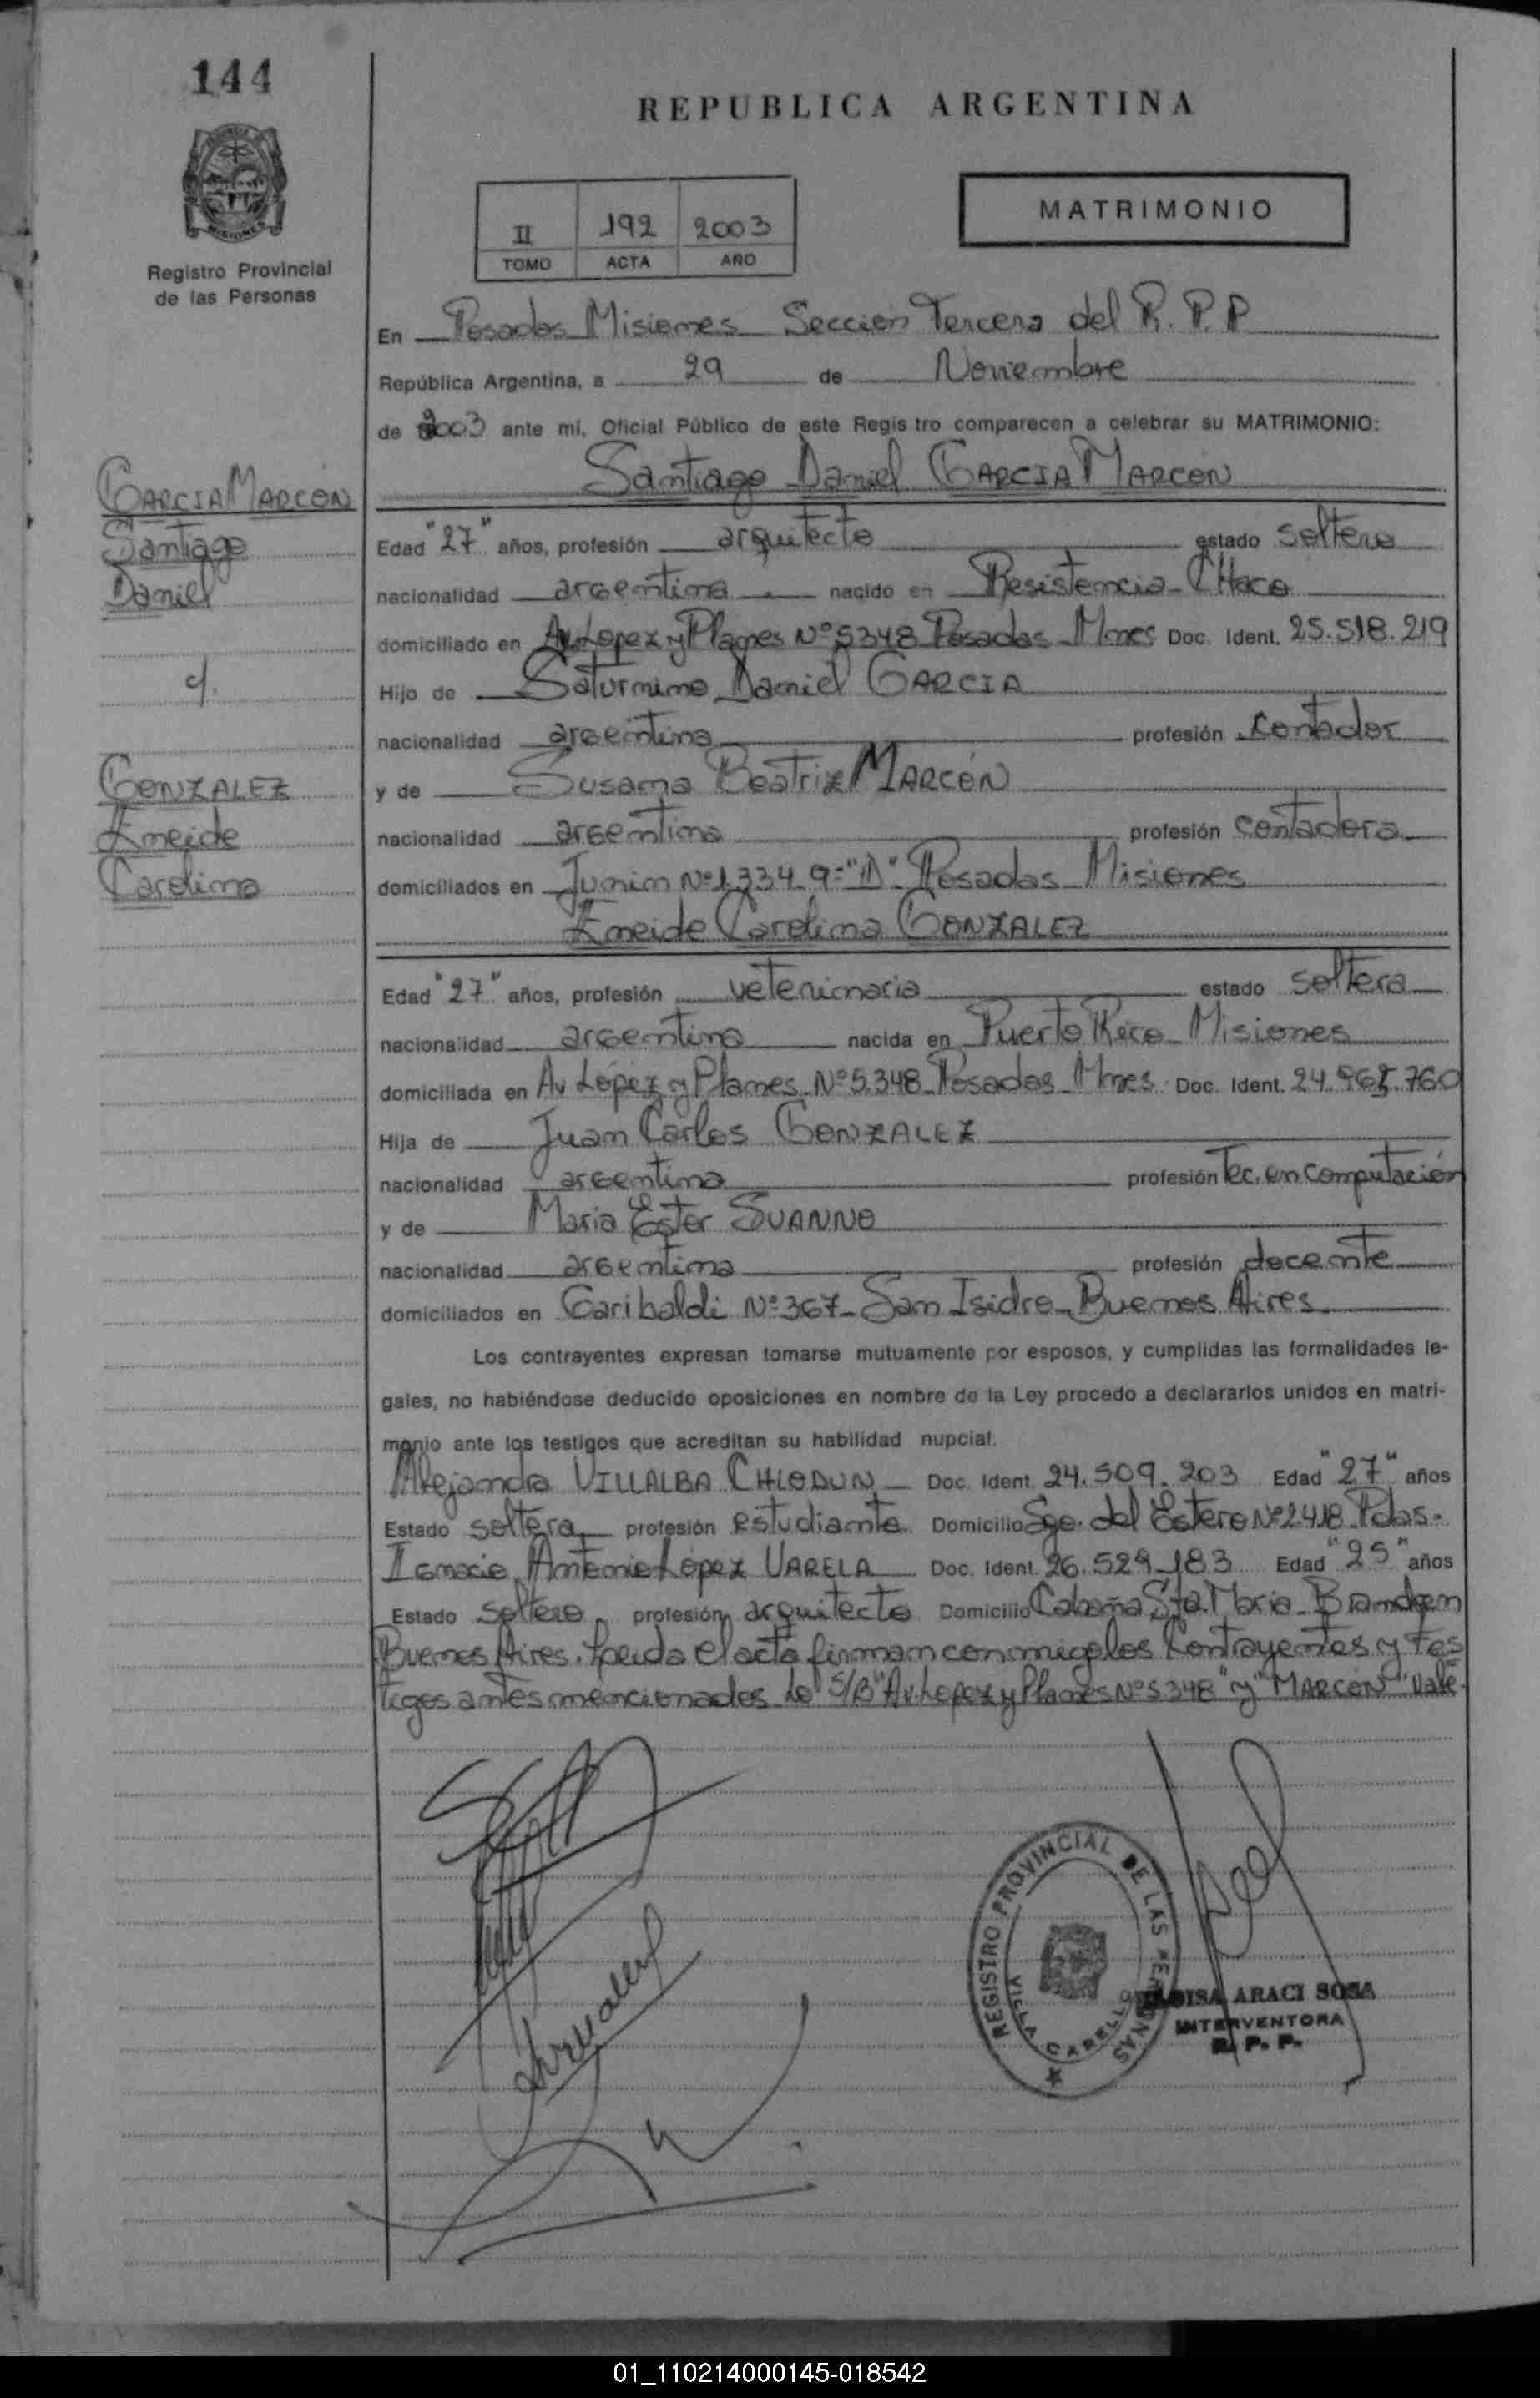 144
REPUBLICA ARGENTINA
MISIONES
Registro Provincial
de las Personas
II 192 2003
TOMO ACTA AÑO
MATRIMONIO
En Posadas Misiones Sección Tercera del R.P.P
República Argentina, a 29 de Noviembre
de 2003 ante mí, Oficial Público de este Regis tro comparecen a celebrar su MATRIMONIO:
Santiago Daniel GARCIA MARCON
GARCIA MARCON
Santiago
Daniel
Edad "27" años, profesión arquitecto estado soltero
nacionalidad argentina nacido en Resistencia - CHaco
domiciliado en Av. Lopez y Planes Nº 5348 Posadas - Mnes Doc. Ident. 25.518.219
Hijo de Saturnino Daniel GARCIA
nacionalidad argentina profesión Contador
y de Susana Beatriz MARCÓN
nacionalidad argentina profesión contadora
domiciliados en Junin Nº 1.334 9º "D" Posadas Misiones
c/.
GONZALEZ
Eneide
Carolina
Eneide Carolina GONZALEZ
Edad "27" años, profesión veterinaria estado soltera
nacionalidad argentina nacida en Puerto Rico - Misiones
domiciliada en Av López y Planes Nº 5.348 Posadas - Mnes. Doc. Ident. 24.965.760
Hija de Juan Carlos GONZALEZ
nacionalidad argentina profesión Tec. en Computación
y de Maria Ester SUANNO
nacionalidad argentina profesión docente
domiciliados en Garibaldi Nº 367 - San Isidro - Buenos Aires
Los contrayentes expresan tomarse mutuamente por esposos, y cumplidas las formalidades le-
gales, no habiéndose deducido oposiciones en nombre de la Ley procedo a declararlos unidos en matri-
monio ante los testigos que acreditan su habilidad nupcial.
Alejandra VILLALBA CHLODUN Doc. Ident. 24.509.203 Edad "27" años
Estado soltera profesión estudiante Domicilio Sgo. del Estero Nº 2418 Pdas.
Ignacio Antonio López VARELA Doc. Ident. 26.529.183 Edad "25" años
Estado soltero profesión arquitecto Domicilio Cabaña Sta. Maria - Brandsen
Buenos Aires. Leida el acta firman conmigo los Contrayentes y Tes
tigos antes mencionados. Lo S/B "Av. Lopez y Planes Nº 5348" y "MARCON" Vale.
REGISTRO PROVINCIAL DE LAS PERSONAS
VILLA CABELLO
ARACI SOSA
INTERVENTORA
R. P. P.
01_110214000145-018542